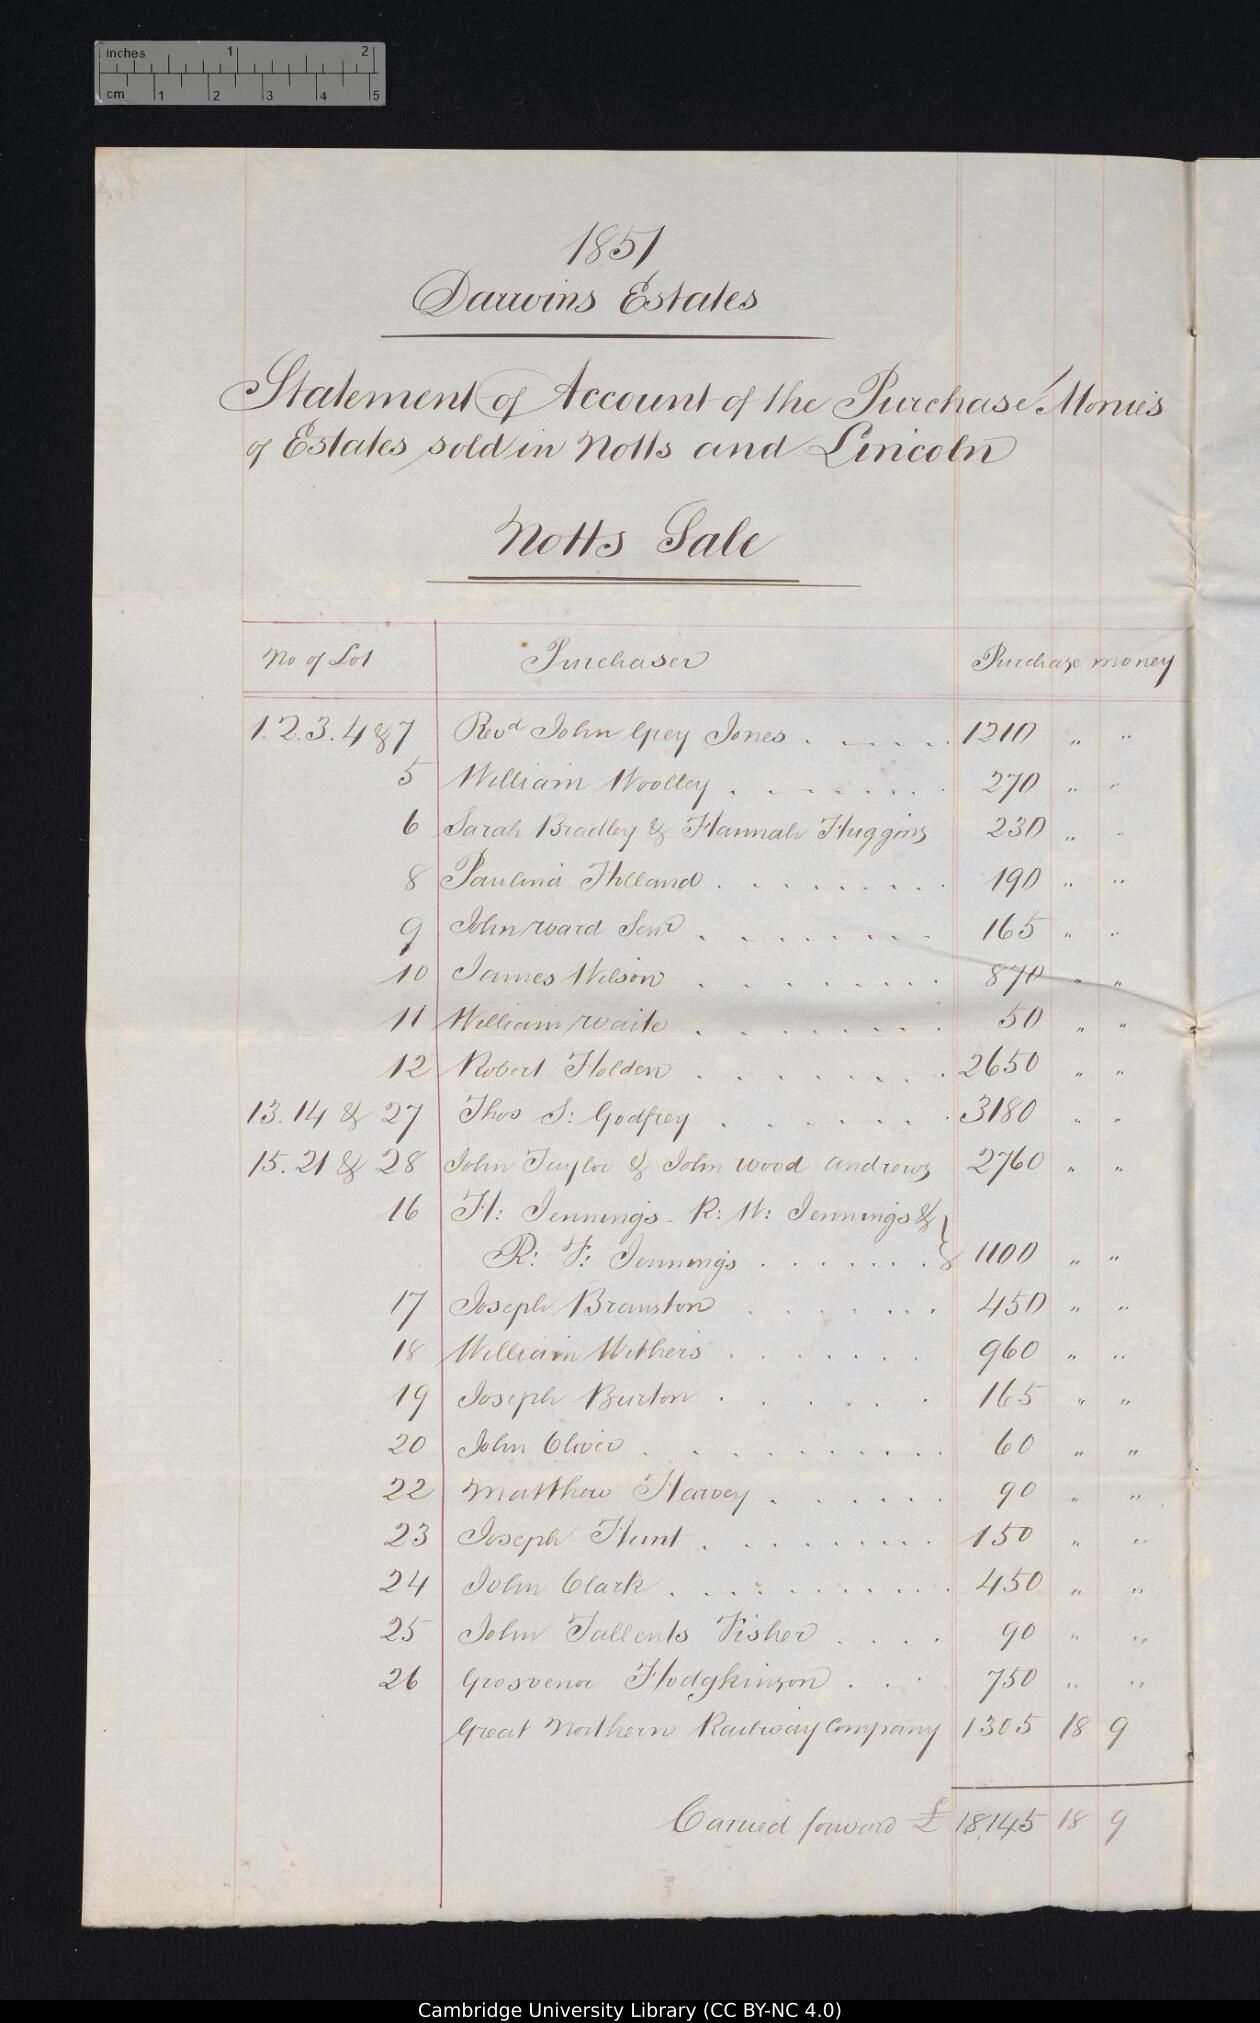 inches 1 2
cm 1 2 3 4 5
1851
Darwins Estates
Statement of Account of the Purchase Monies
of Estates sold in Notts and Lincoln
Notts Sale
No of Lot Purchaser Purchase money
1.2.3.4 & 7 Revd John Grey Jones . . . . . 1210 " "
5 William Woolley . . . . . . 270 " "
6 Sarah Bradley & Hannah Huggins 230 " "
8 Paulina Holland . . . . . . . . 190 " "
9 John Ward Senr . . . . . . . 165 " "
10 James Wilson . . . . . . . . 870 " "
11 William Waite . . . . . . . . 50 " "
12 Robert Holden . . . . . . . . 2650 " "
13.14 & 27 Thos S: Godfrey . . . . . . . 3180 " "
15.21 & 28 John Taylor & John Wood Andrews 2760 " "
16 H: Jennings - R: W: Jennings &
R: F: Jennings . . . . . . . } 1100 " "
17 Joseph Branston . . . . . . 450 " "
18 William Withers . . . . . . 960 " "
19 Joseph Burton . . . . . . 165 " "
20 John Oliver . . . . . . . . . . 60 " "
22 Matthew Harvey . . . . . . 90 " "
23 Joseph Hunt . . . . . . . . . 150 " "
24 John Clark . . . . . . . . . . 450 " "
25 John Tallents Fisher . . . . 90 " "
26 Grosvenor Hodgkinson . . . 750 " "
Great Northern Railway Company 1305 18 9
Carried forward £ 18,145 18 9
Cambridge University Library (CC BY-NC 4.0)